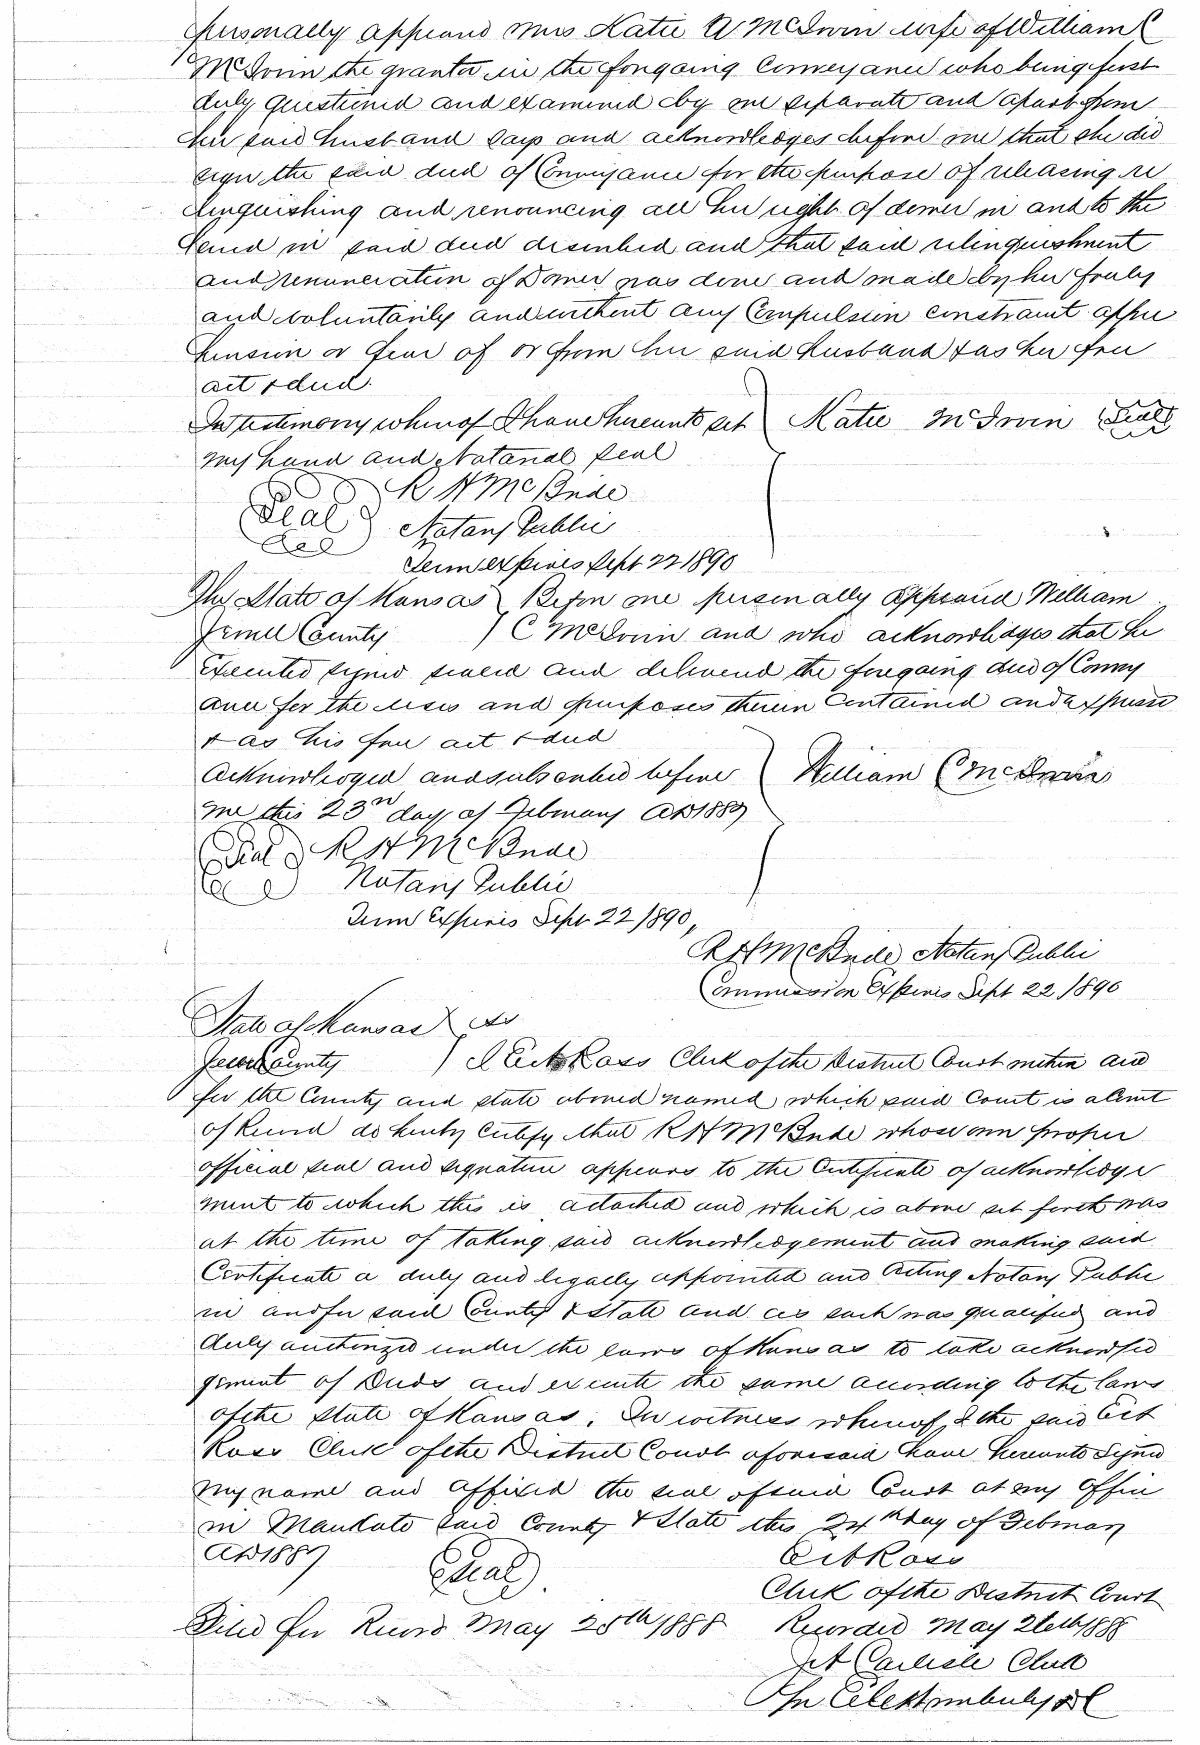 personally appeared Mrs Katie A McIrvin wife of William C
McIrvin the grantor in the foregoing Conveyance who being first
duly questioned and examined by me separate and apart from
her said husband says and acknowledges before me that she did
sign the said deed of Conveyance for the purpose of releasing re
linquishing and renouncing all her right of dower in and to the
land in said deed described and that said relinquishment
and renunciation of Dower was done and made by her freely
and voluntarily and without any Compulsion constraint appre
hension or fear of or from her said Husband & as her free
act & deed.
In testimony whereof I have hereunto set Katie McIrvin (Seal)
my hand and Notarial seal
R H McBride
Seal Notary Public
Term expires Sept 22 1890
The State of Kansas Before me personally appeared William
Jewell County C McIrvin and who acknowledges that he
executed signed sealed and delivered the foregoing deed of Convey
ance for the uses and purposes therein Contained and expressed
& as his free act & deed
Acknowledged and subscribed before William C McIrvin
me this 23rd day of February AD 1887
Seal R H McBride
Notary Public
Term Expires Sept 22 1890,
R H McBride Notary Public
Commission Expires Sept 22 1890
State of Kansas ss
Jewell County I Ross Clerk of the District Court within and
for the County and state above named which said Court is a Court
of Record do hereby Certify that R H McBride whose own proper
official seal and signature appears to the Certificate of acknowledge
ment to which this is attached and which is above set forth was
at the time of taking said acknowledgement and making said
Certificate a duly and legally appointed and Acting Notary Public
in and for said County & State and as such was qualified and
duly authorized under the laws of Kansas to take acknowled
gement of Deeds and execute the same according to the laws
of the State of Kansas. In witness whereof I the said
Ross Clerk of the District Court aforesaid have hereunto signed
my name and affixed the seal of said Court at my Office
in Mankato said County & State this 24th day of February
AD 1887 (Seal) Ross
Clerk of the District Court
Filed for Record May 25th 1888 Recorded May 26th 1888
Carlisle Clerk
DC